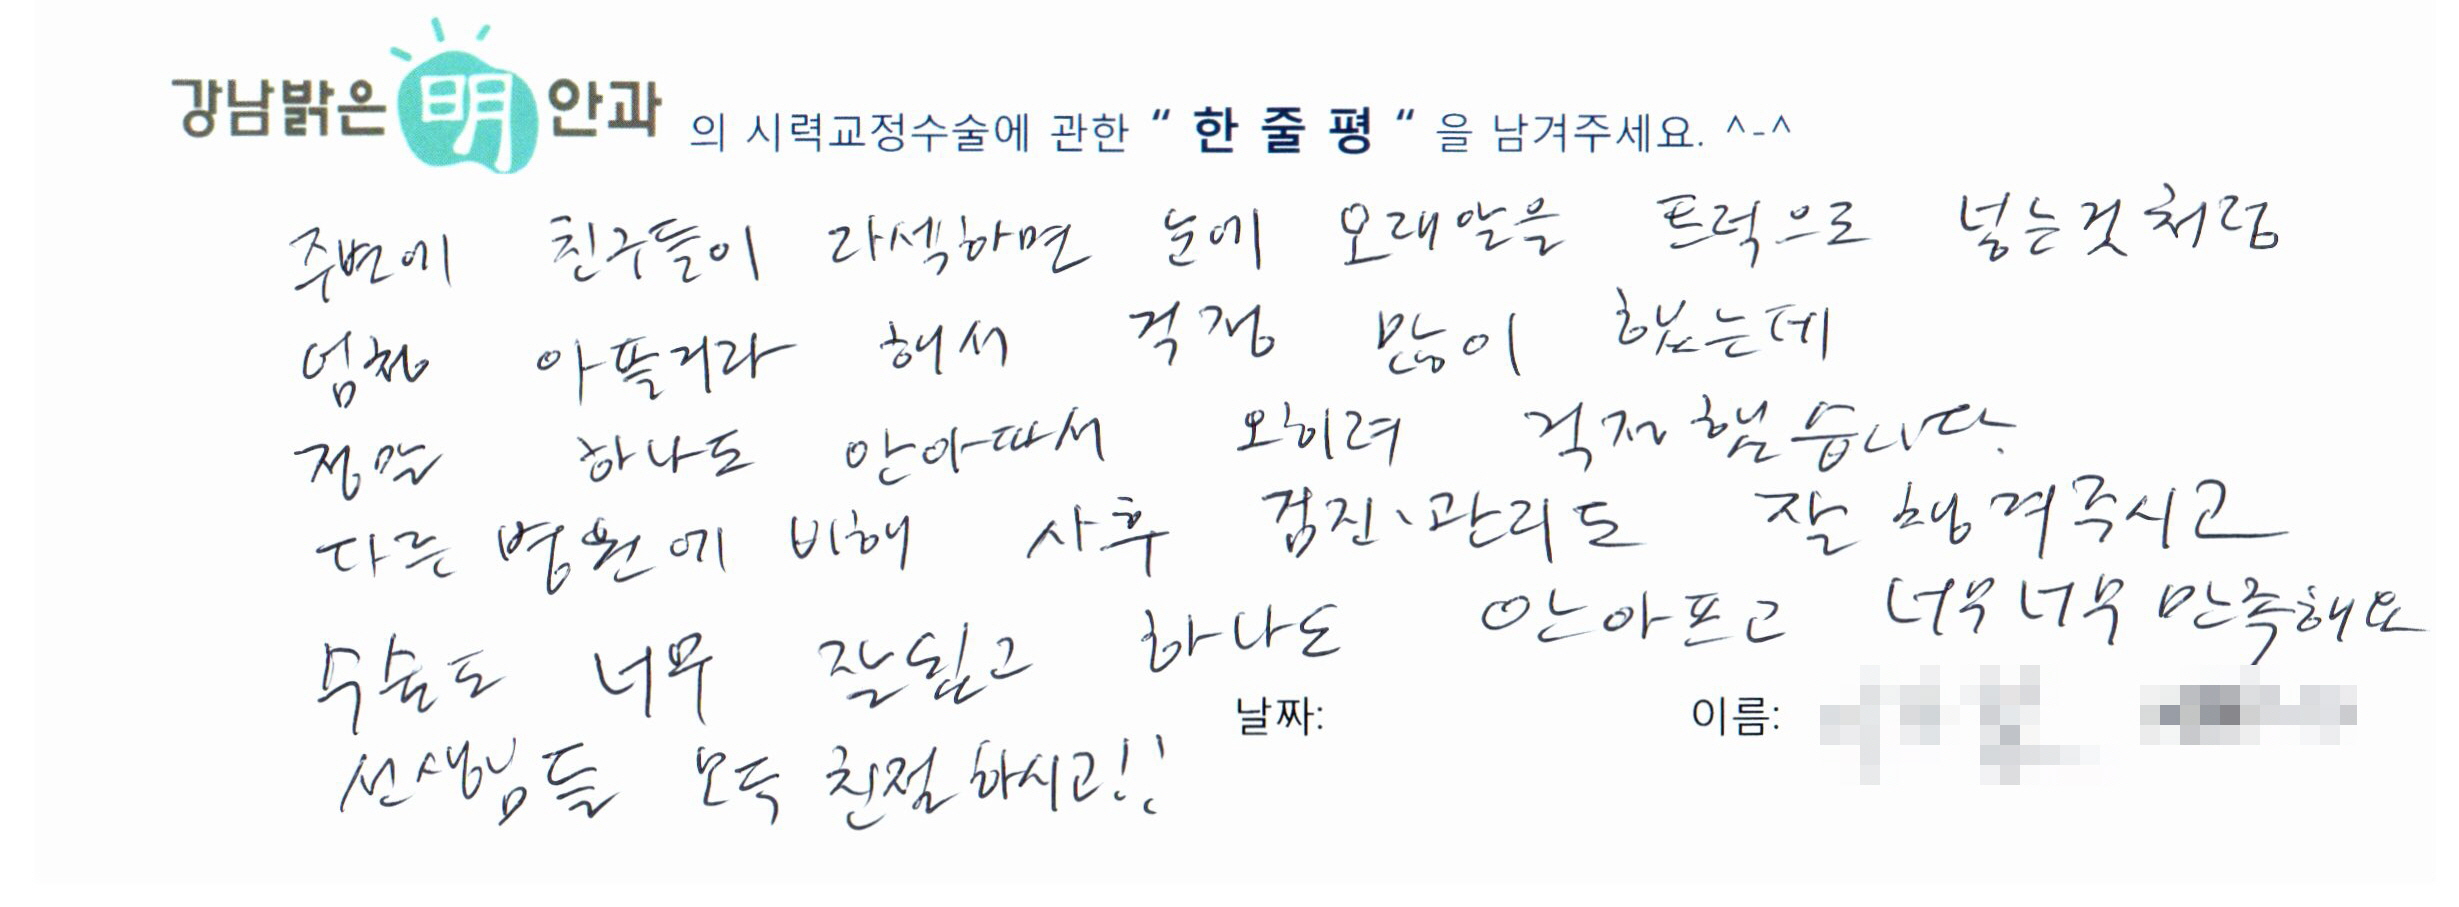 강남밝은 明 안과 의 시력교정수술에 관한 “ 한 줄 평 “ 을 남겨주세요. ^-^
주변에 친구들이 라섹하면 눈에 모래알을 트럭으로 넣는것처럼
엄청 아플거라 해서 걱정 많이 했는데
정말 하나도 안아따서 오히려 걱정했습니다.
다른 병원에 비해 사후 검진、관리도 잘 챙겨주시고
수술도 너무 잘됬고 하나도 안아프고 너무너무 만족해요
날짜: 이름:
선생님들 모두 친절하시고!!